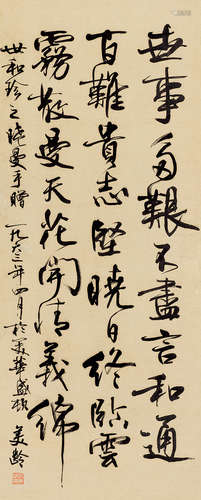 世事多艱不盡言和通
百難貴志堅曉日終臨雲
霧散曼天花開情義綿
世和珍之曉曼手贈 一九六三年四月於美華盛頓 美齡